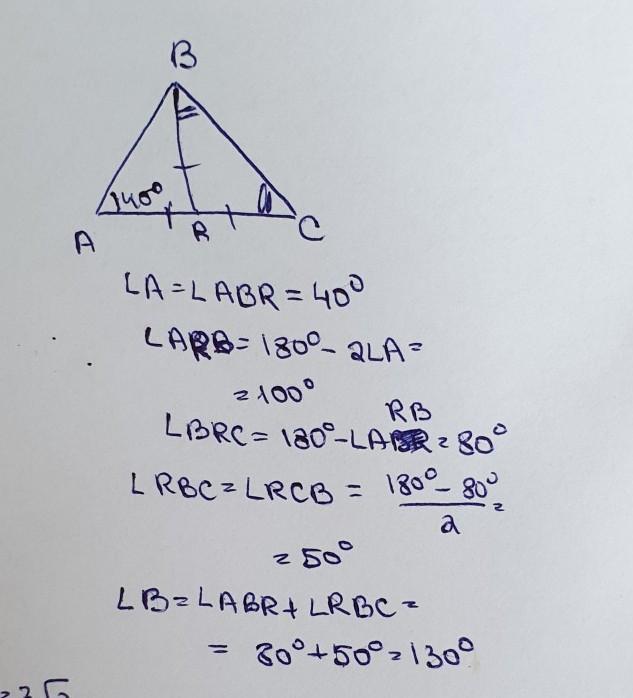 B
40°
A
R
C
∠A = ∠ABR = 40°
∠ARB = 180° - 2∠A =
= 100°
RB
∠BRC = 180° - ∠A = 80°
∠RBC = ∠RCB = 180° - 80° / 2 =
= 50°
∠B = ∠ABR + ∠RBC =
= 80° + 50° = 130°